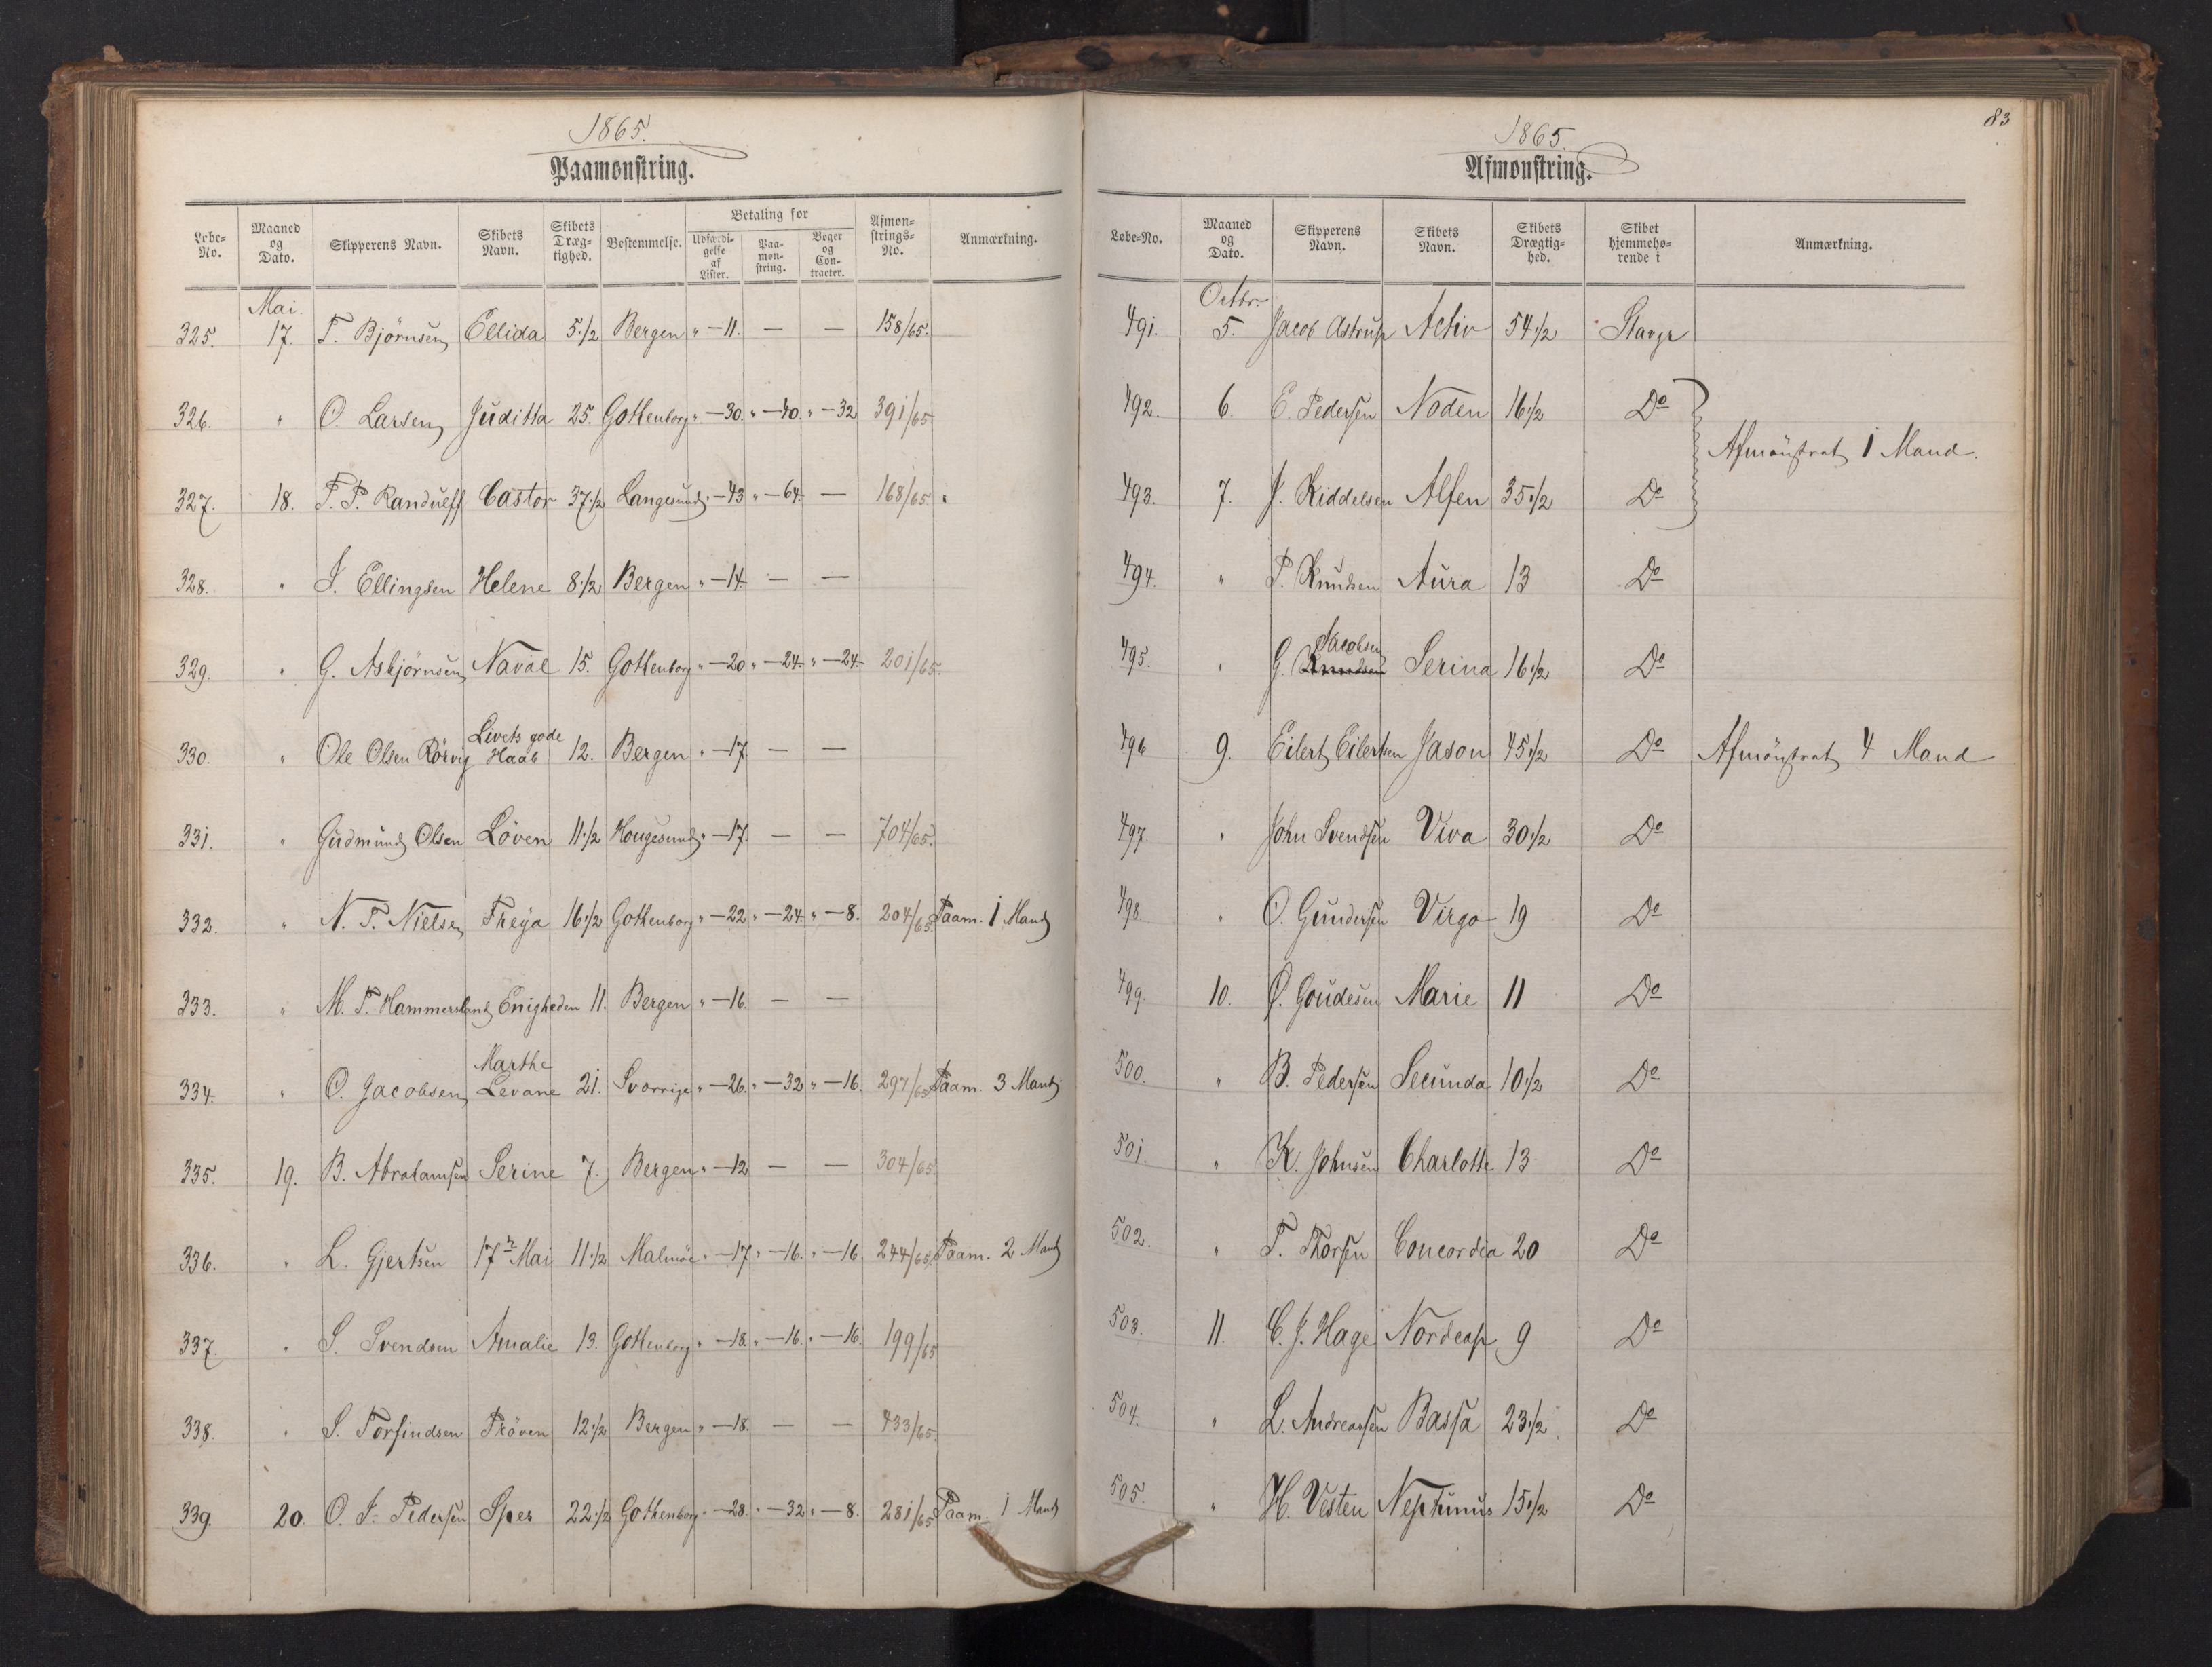 1865.
Paamønstring.
Løbe-No. Maaned og Dato. Skipperens Navn. Skibets Navn. Skibets Dræg-tighed. Bestemmelse. Betaling for Udfærdi-gelse af Lister. Paa-møn-string. Bøger og Con-tracter. Afmøn-strings-No. Anmærkning.
Mai.
325. 17. T. Bjørnsen Ellida 5 1/2 Bergen " — 11. — — 158/65.
326. " O. Larsen Juditta 25. Gottenborg " — 30. " — 40. " — 32 391/65
327. 18. T. P. Randulff Castor 37 1/2 Langesund " — 43 " — 64. — 168/65.
328. " J. Ellingsen Helene 8 1/2 Bergen " — 14 — —
329. " G. Asbjørnsen Naval 15. Gottenborg " — 20 " — 24. " — 24. 201/65.
330. " Ole Olsen Rörvig Livets gode Haab 12. Bergen " — 17. — —
331. " Gudmund Olsen Löven 11 1/2 Hougesund " — 17. — — 704/65.
332. " N. T. Nielsen Freya 16 1/2 Gottenborg " — 22 " — 24. " — 8. 204/65. Paam. 1 Mand
333. " M. T. Hammersland Enigheden 11. Bergen " — 16. — —
334. " O. Jacobsen Marthe Levane 21. Sverrige " — 26. " — 32 " — 16. 297/65. Paam. 3 Mand
335. 19. B. Abrahamsen Serine 7. Bergen " — 12 — — 304/65
336. " L. Gjertsen 17n Mai 11 1/2 Malmöe " — 17. " — 16. " — 16. 244/65. Paam. 2 Mand
337. " S. Svendsen Amalie 13. Gottenborg " — 18. " — 16. " — 16. 199/65
338. " S. Torfindsen Pröven 12 1/2 Bergen " — 18. — — 433/65.
339. 20. O. J. Pedersen Spes 22 1/2 Gothenborg " — 28. " — 32. " — 8. 281/65. Paam. 1 Mand
83
1865.
Afmønstring.
Løbe-No. Maaned og Dato. Skipperens Navn. Skibets Navn. Skibets Drægtig-hed. Skibet hjemmehø-rende i Anmærkning.
Octbr.
491. 5. Jacob Astrup Activ 54 1/2 Stavgr
492. 6. E. Pedersen Noden 16 1/2 Do
Afmönstret 1 Mand.
493. 7. J. Kiddelsen Alfen 35 1/2 Do
494. " P. Knudsen Aura 13 Do
495. " G. Knudsen Jacobsen Serina 16 1/2 Do
496 9. Eilert Eilertsen Jason 45 1/2 Do Afmönstret 4 Mand
497. " John Svendsen Viva 30 1/2 Do
498 " O. Gundersen Virgo 19 Do
499. 10. O. Goudesen Marie 11 Do
500. " B. Pedersen Secunda 10 1/2 Do
501. " K. Johnsen Charlotte 13 Do
502. " T. Thorsen Concordia 20 Do
503. 11. C. J. Hage Nordcap 9 Do
504. " L. Andreassen Bassa 23 1/2 Do
505. " H. Vesten Neptunus 15 1/2 Do